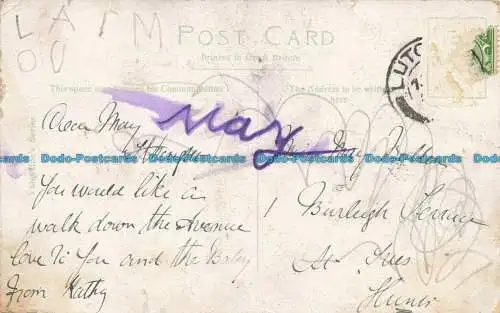 LATM
OO
POST CARD
Printed in Great Britain
This space may be used for Communication
The Address to be written here
LUTO
Dear May
May
I hope
You would like a
walk down the Avenue
love to You and the Baby
From Kathy
May
1 Burleigh Terrace
St Ives
Hunts
Dodo-Postcards Dodo-Postcards Dodo-Postcards Dodo-Postcards Dodo-Postcards